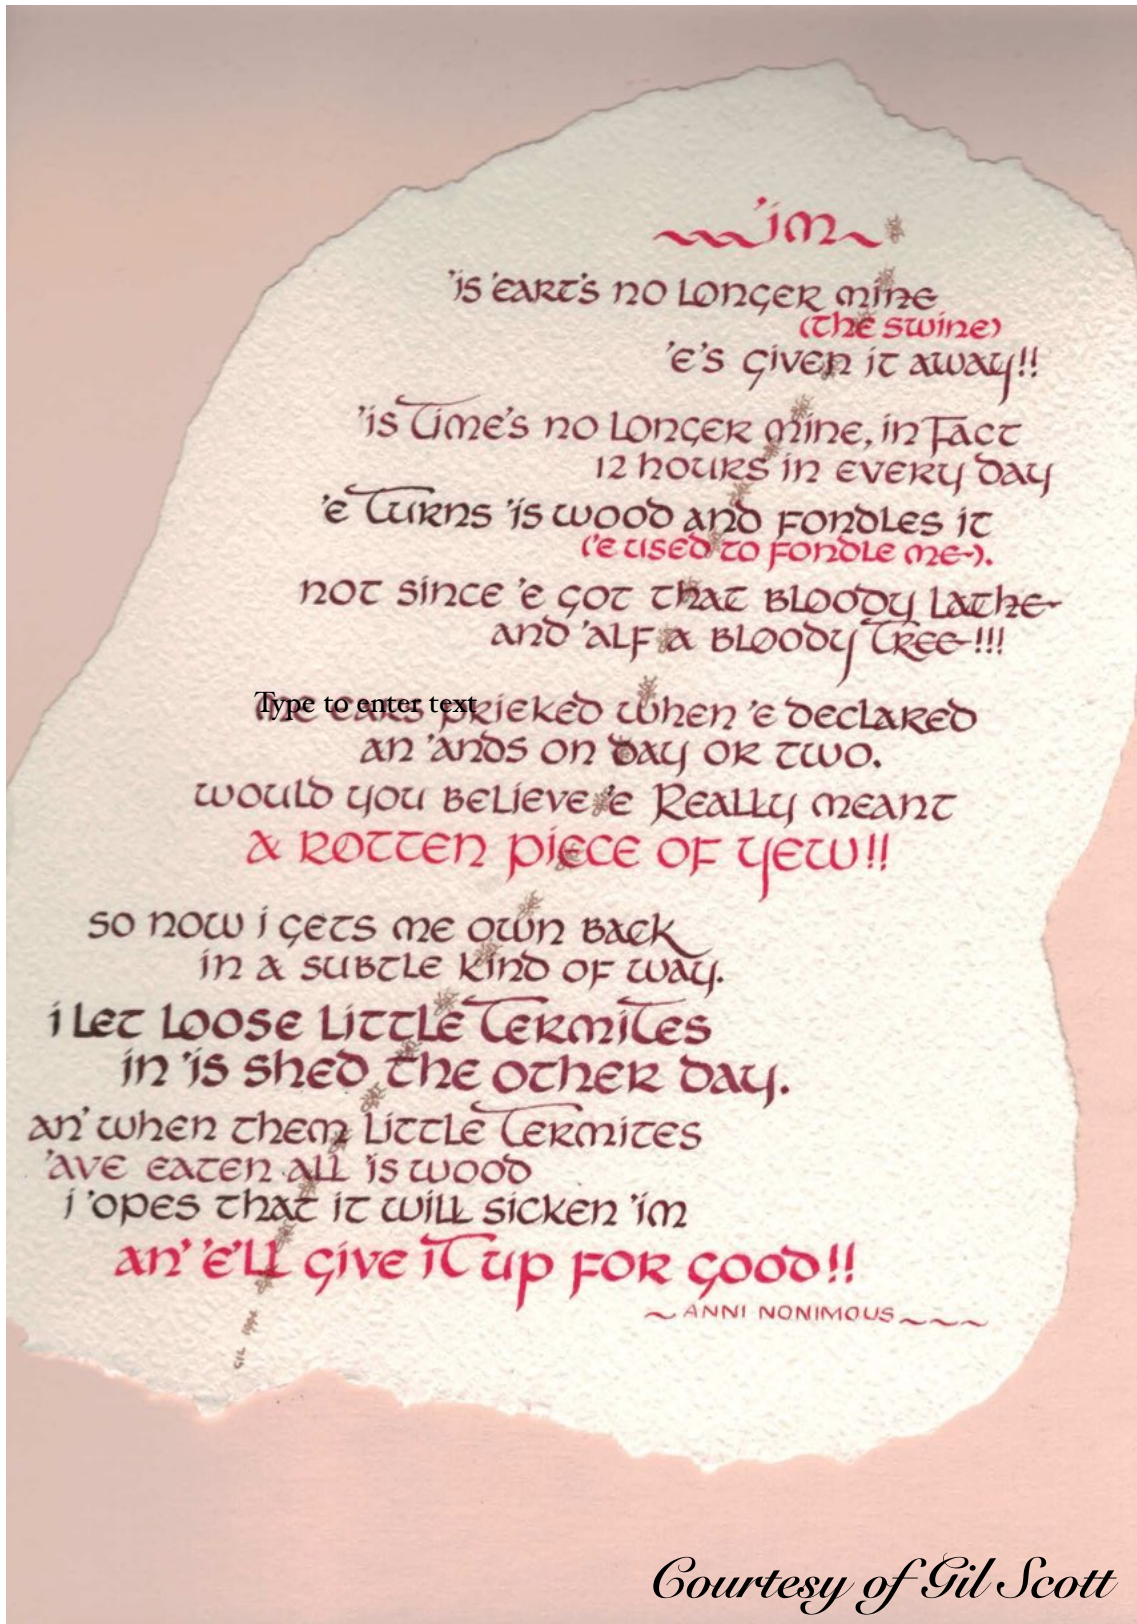 'im
'is 'eart's no longer mine
(the swine)
'e's given it away!!
'is time's no longer mine, in fact
12 hours in every day
'e turns 'is wood and fondles it
('e used to fondle me).
not since 'e got that bloody lathe
and 'alf a bloody tree!!!
Type to enter text
me ears prieked when 'e declared
an 'ands on day or two.
would you believe 'e really meant
a rotten piece of yew!!
so now i gets me own back
in a subtle kind of way.
i let loose little termites
in 'is shed the other day.
an' when them little termites
'ave eaten all 'is wood
i 'opes that it will sicken 'im
an' 'e'll give it up for good!!
ANNI NONIMOUS
GIL
Courtesy of Gil Scott